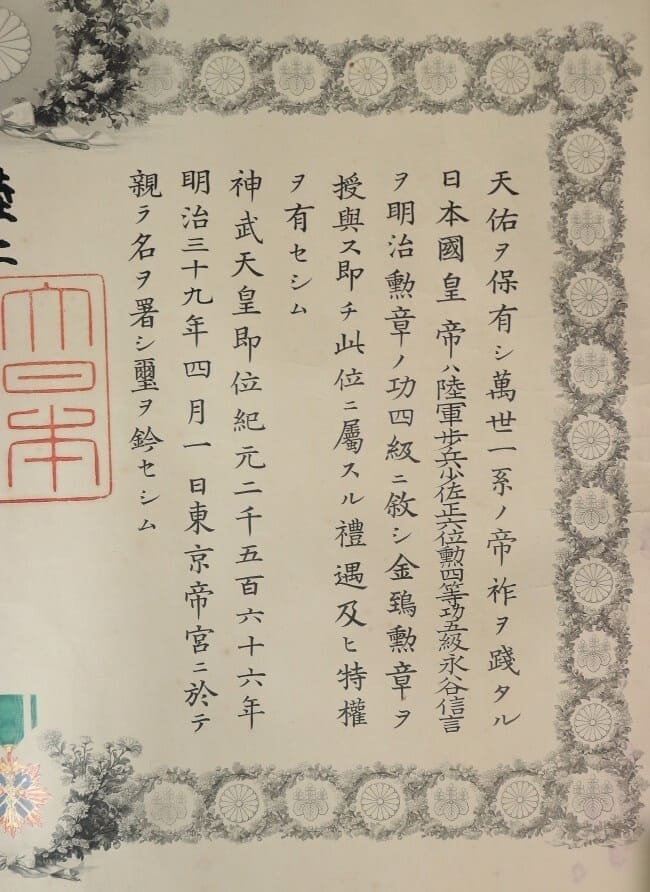 天佑ヲ保有シ萬世一系ノ帝祚ヲ踐タル
日本國皇帝ハ陸軍歩兵少佐正六位勲四等功五級永谷信言
ヲ明治勲章ノ功四級ニ敘シ金鵄勲章ヲ
授與ス即チ此位ニ屬スル禮遇及ヒ特權
ヲ有セシム
神武天皇即位紀元二千五百六十六年
明治三十九年四月一日東京帝宮ニ於テ
親ラ名ヲ署シ璽ヲ鈐セシム
大日本